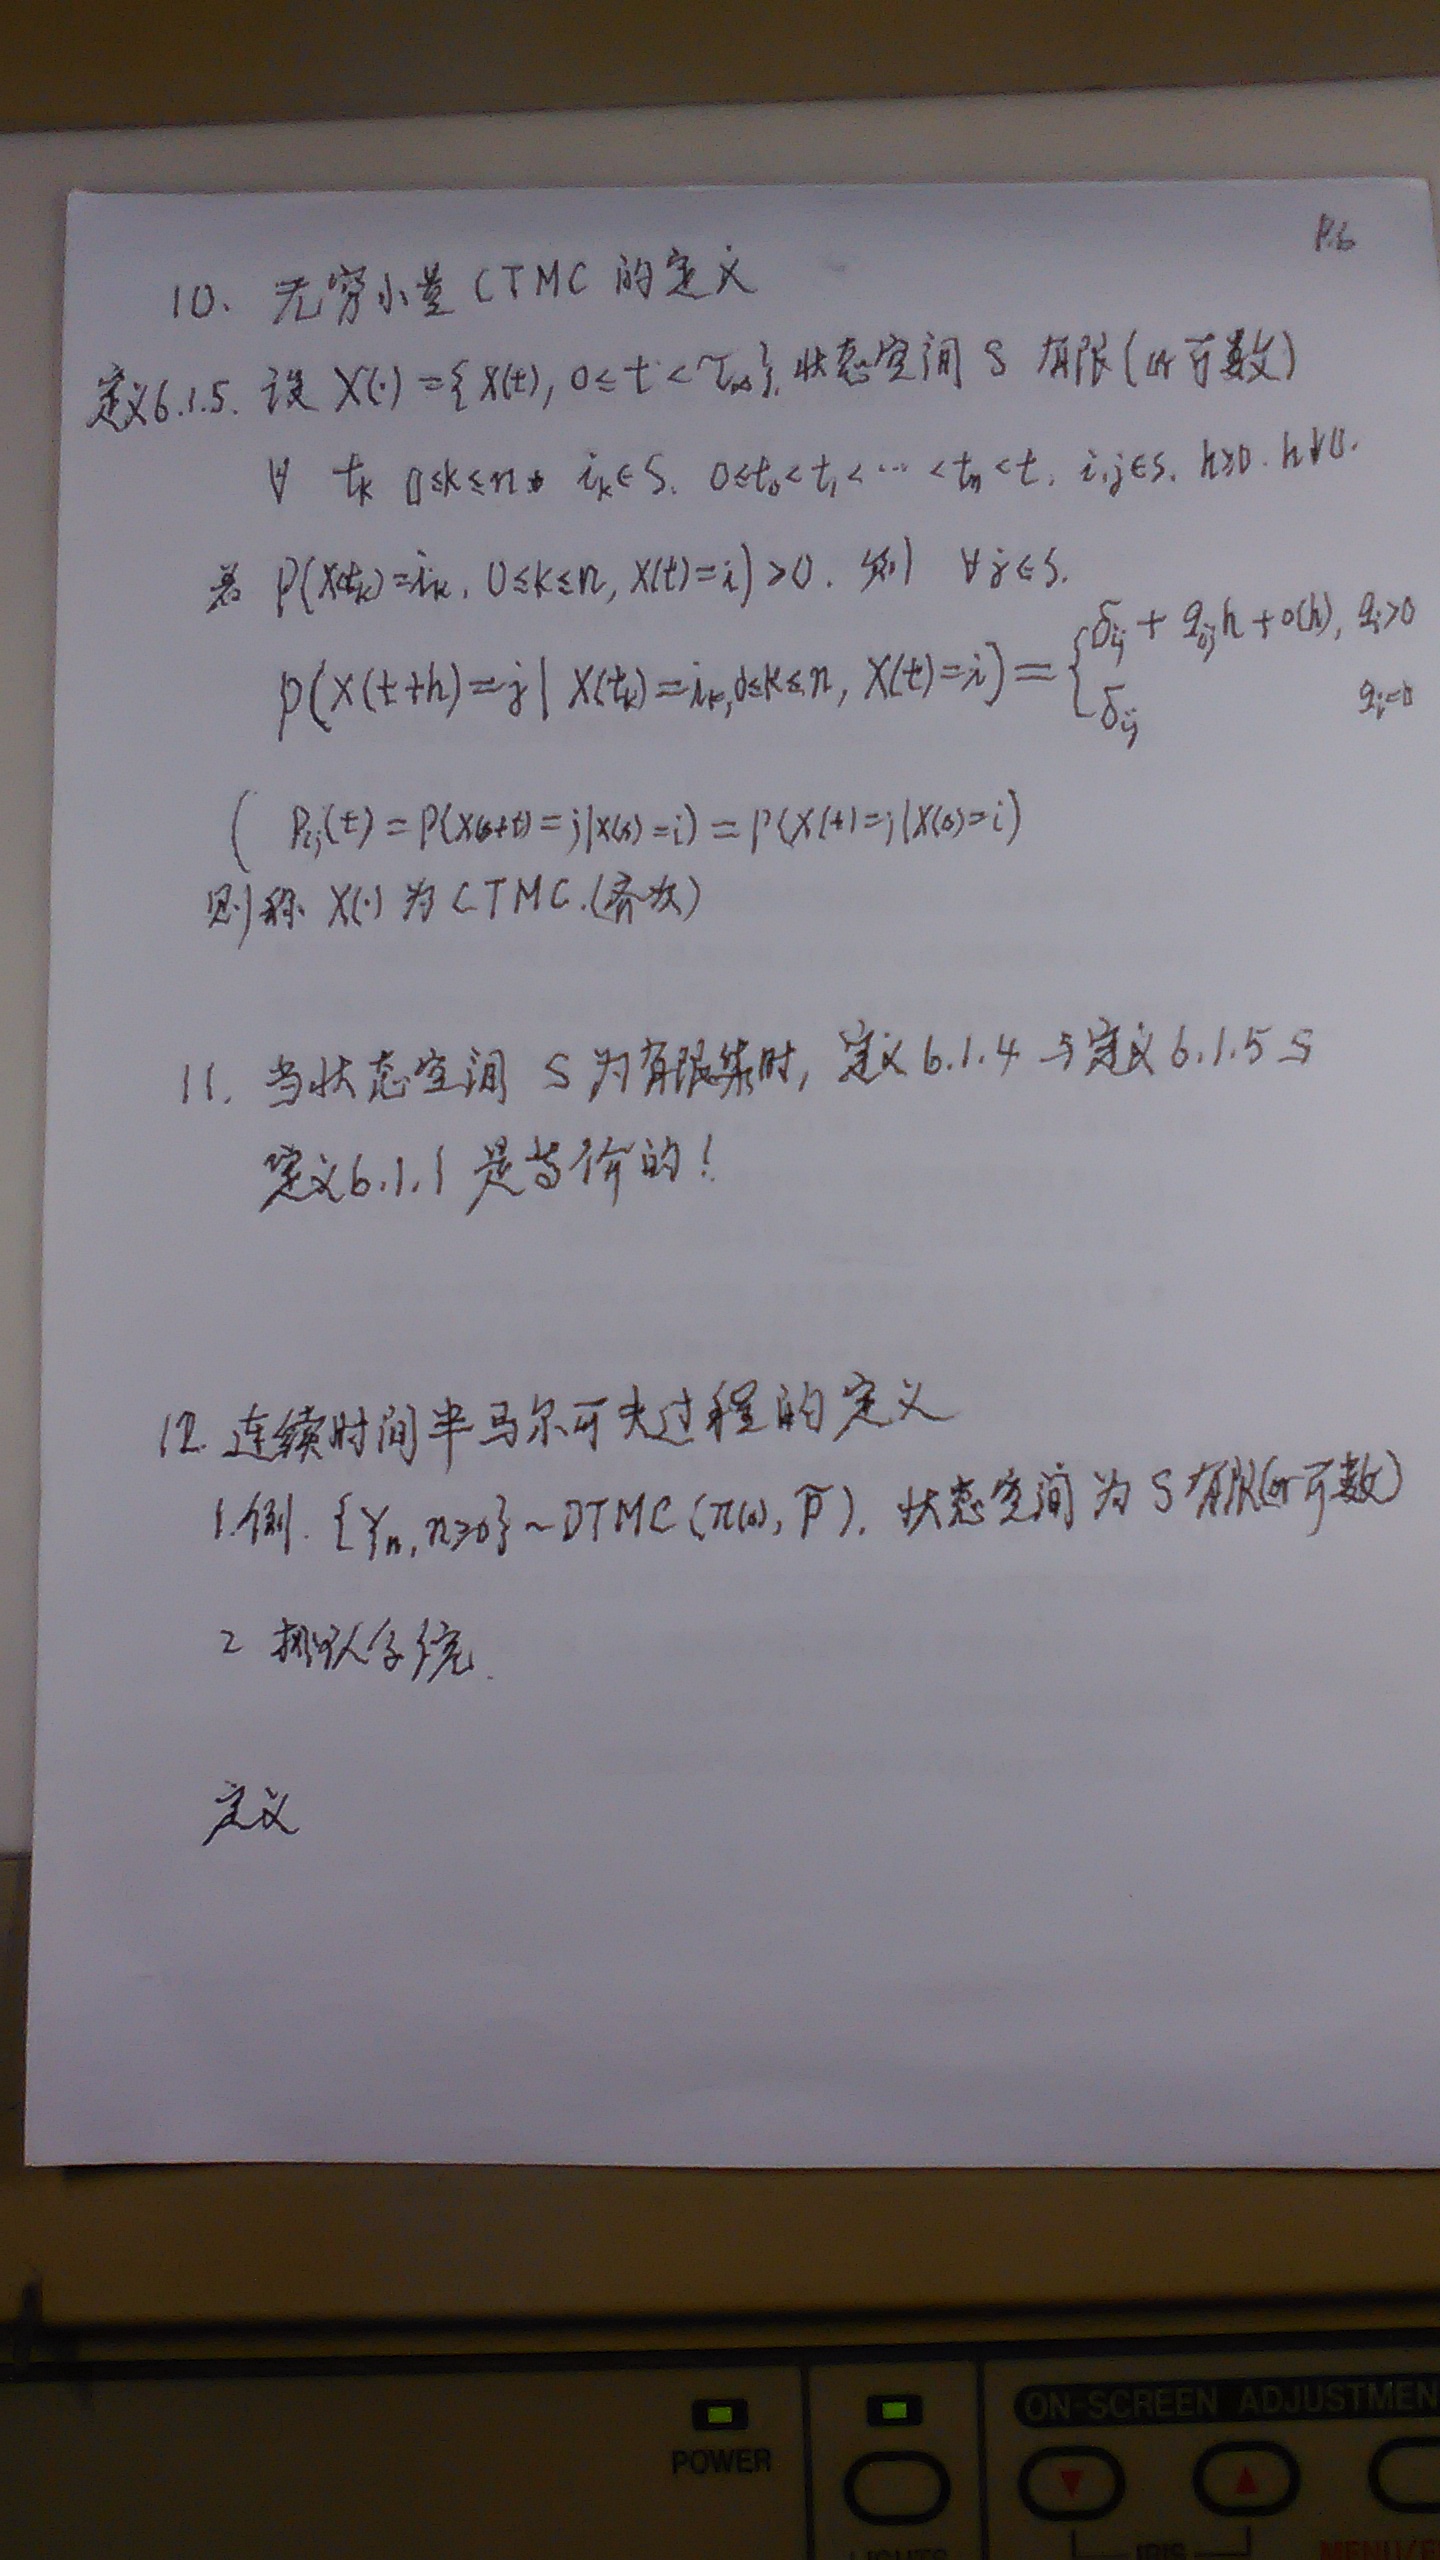 P.6
10. 无穷小量CTMC的定义
定义6.1.5. 设 X(·)={X(t), 0≤t<τ∞}, 状态空间 S 有限(or可数)
∀ tₖ 0≤k≤n, iₖ∈S, 0≤t₀<t₁<…<tₙ<t, i,j∈S, h>0, h↓0.
若 P(X(tₖ)=iₖ, 0≤k≤n, X(t)=i)>0. 则 ∀j∈S.
P(X(t+h)=j | X(tₖ)=iₖ, 0≤k≤n, X(t)=i) = { δᵢⱼ + qᵢⱼh + o(h), qᵢ>0
δᵢⱼ qᵢ=0
( Pᵢⱼ(t)=P(X(s+t)=j|X(s)=i)=P(X(t)=j|X(0)=i)
则称 X(·) 为 CTMC.(齐次)
11. 当状态空间 S 为有限集时, 定义6.1.4与定义6.1.5与
定义6.1.1是等价的!
12. 连续时间半马尔可夫过程的定义
1.例. {Yₙ, n≥0}~DTMC(π(0), P̃). 状态空间为 S 有限(or可数)
2 排队系统.
定义
POWER
ON-SCREEN ADJUSTMEN
IRIS